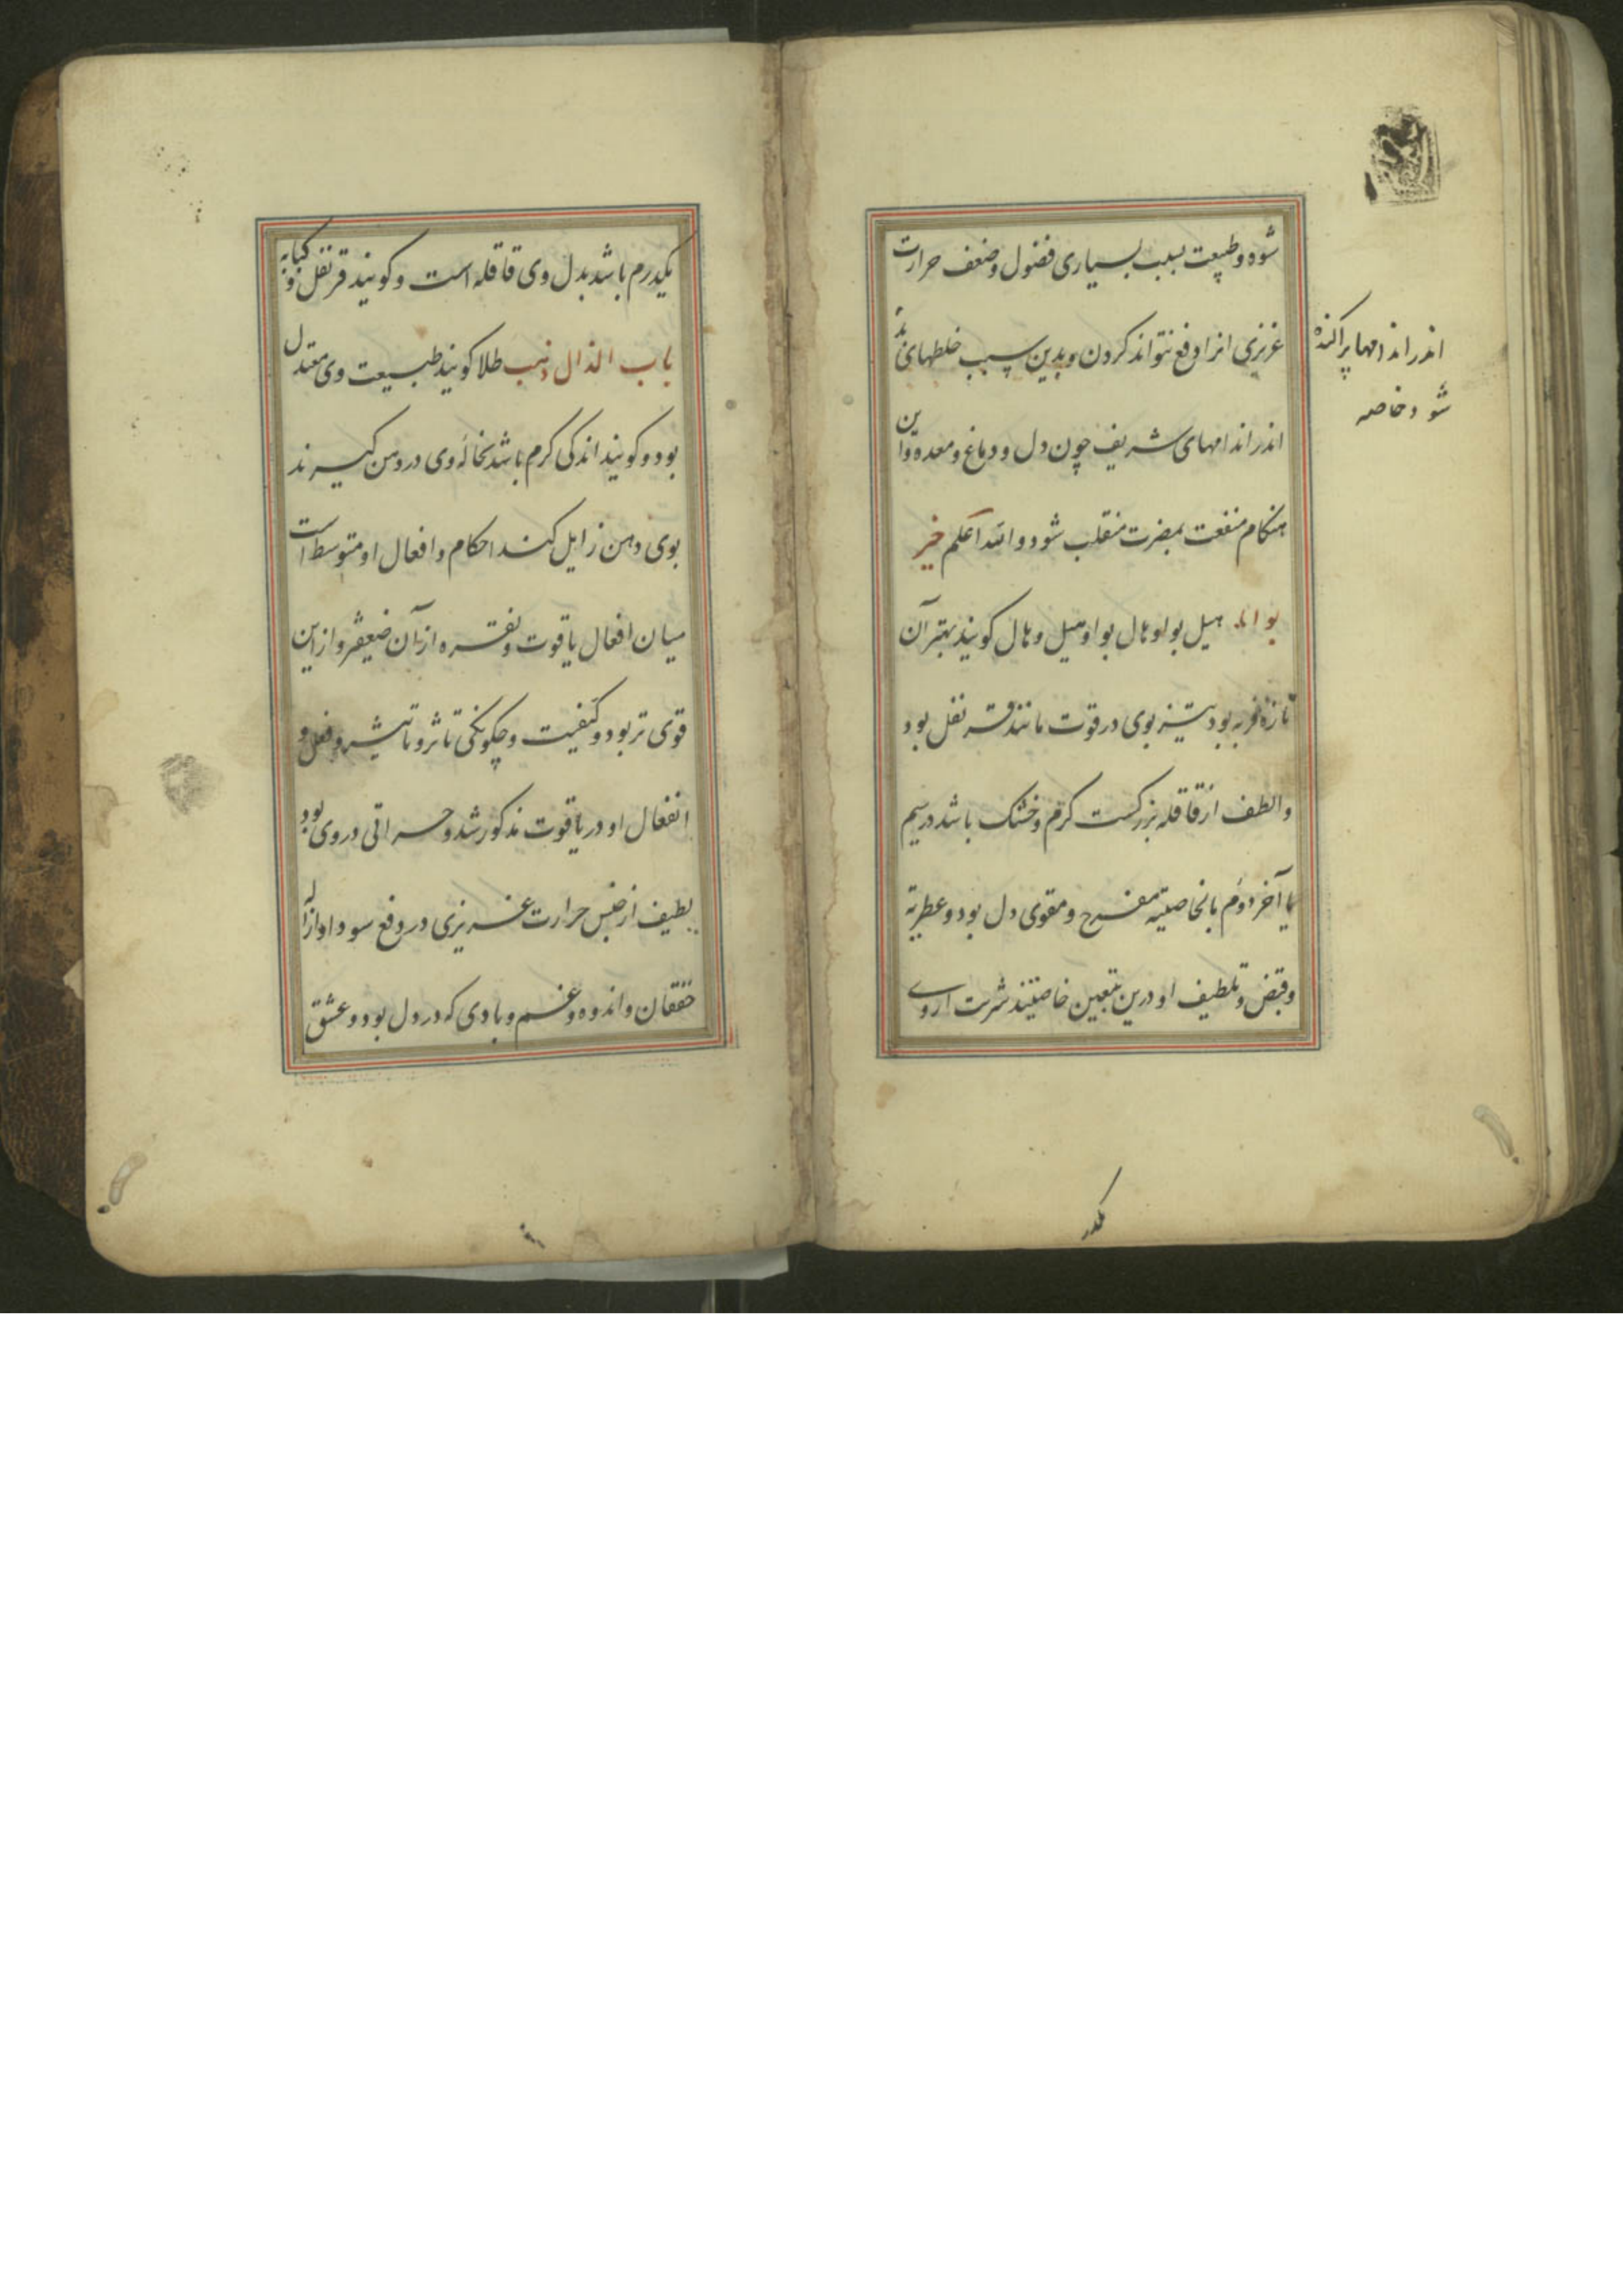 شود و طبیعت بسبب بسیاری فضول و ضعف حرارت
غریزی انرا دفع نتواند کردن و بدین سبب خلطهای بد
اندر اندامها پراکنده
شود خاصه
اندر اندامهای شریف چون دل و دماغ و معده و این
هنکام منفعت بمضرت منقلب شود و الله اعلم خیر
بوا هیل بوا و هال بوا و هیل و هال کویند بهتر آن
تازه فربه بود تیز بوی در قوت مانند قرنفل بود
و الطف از قاقله بزرکست کرم و خشک باشد در سیم
یا آخر دوم بالخاصیته مفرح و مقوی دل بود و عطریة
و قبض و تلطیف او درین معین خاصیتند شربت از وی
یکدرم
یکدرم باشد بدل وی قاقله است و کویند قرنفل و کبابه
باب الذال ذهب طلا کویند طبیعت وی معتدل
بود و کویند اندکی کرم باشد نخاله وی در دهن کیرند
بوی دهن زایل کند احکام و افعال او متوسط است
میان افعال یاقوت و نقره از آن ضعیفتر و از این
قوی تر بود و کیفیت و چکونکی تاثر و تاثیر و فعل و
انفعال او در یاقوت مذکور شد و حرارتی در وی بود
لطیف از جنس حرارت غریزی در دفع سودا و ازاله
خفقان و اندوه و غم و بادی که در دل بود و عشق